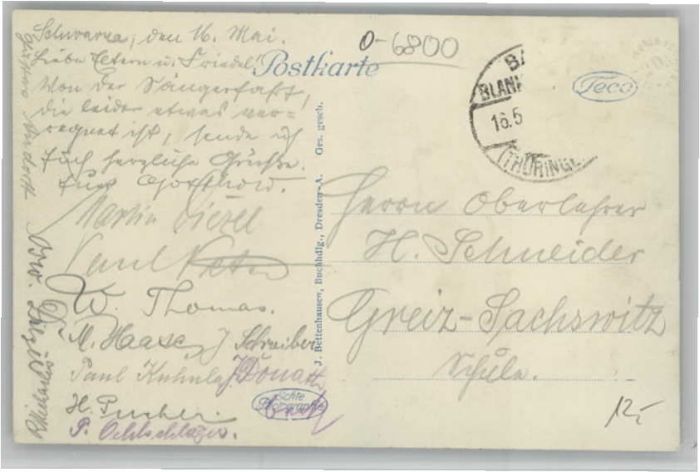 Schwarza, den 16. Mai.
Liebe Eltern u. Friedel!
Von der Sängerfahrt,
die leider etwas ver=
regnet ist, sende ich
Euch herzliche Grüße.
Euer
Martin
Paul
W. Thomas.
M. Haase, J. Schreiber
Paul Kuhnla J. Donath
H. Pucher.
P. Oehlschläger.
O-6800
Postkarte
BLANK
16.5
(THÜRING
Teco
J. Bettenhausen, Buchhdlg., Dresden-A. Ges. gesch.
Herrn Oberlehrer
H. Schneider
Greiz-Sachswitz
Schule.
12,-